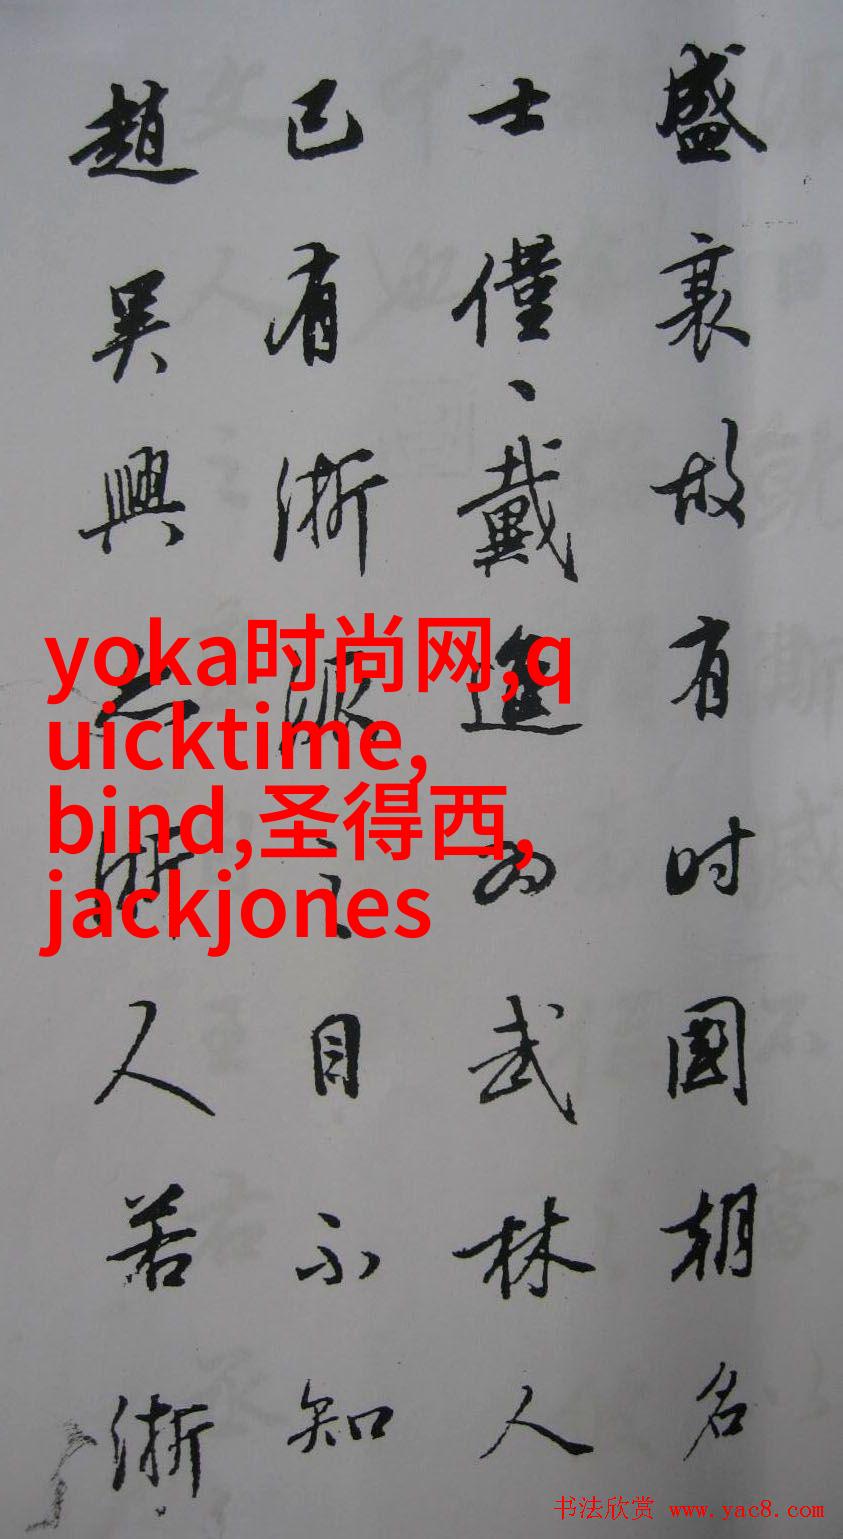 盛衰故有时國朝名
士僅、戴進为武林人
已有浙派之目不知
趙吴興亦浙人若浙
yoka时尚网,q
uicktime,
bind,圣得西,
jackjones
书法欣赏 www.yac8.com